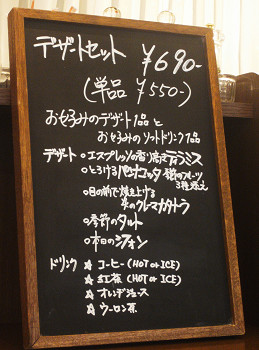 デザートセット ¥690-
(単品 ¥550-)
お好みのデザート1品と
お好みのソフトドリンク1品
デザート ○エスプレッソの香り高きティラミス
○とろけるパンナコッタ 彩のフルーツ
3種添え
○目の前で焼き上げる
クレマカタトラ
○季節のタルト
○本日のシフォン
ドリンク ☆コーヒー(HOT or ICE)
☆紅茶(HOT or ICE)
☆オレンジジュース
☆ウーロン茶